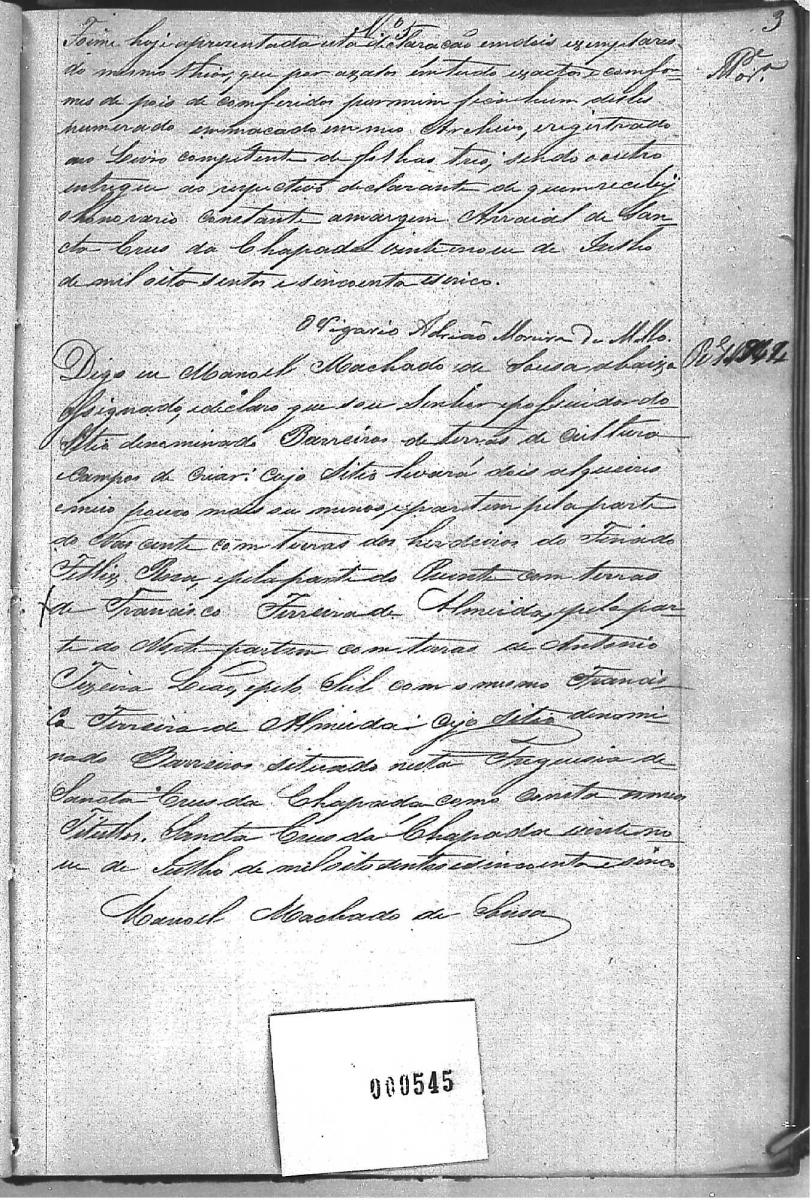 3
N.º 3
Foime hoje apresentada esta declaração em dois exemplares
do mesmo thior, que por axalos em tudo exactos e comfor-
mes de pois de comferidos por mim ficando hum delles
numerado emmacado em meo Archivo, e registrado
no Livro competente de folhas tres, sendo o outro
entregue ao respectivo declarante de quem recebi
o honorario constante a margem Arraial de San-
cta Crus da Chapada vinte nove de Julho
de mil oito sentos e sincoenta e sinco.
O Vigario Adrião Moreira de Mello.
Digo eu Manoel Machado de Sousa abaixo
assignado, e declaro que sou Senhor e possuidor do
Sitio denominado Barreiros de terras de cultura
e campos de criar: cujo Sitio levará dois alqueires
e meio pouco mais ou menos, e partem pela parte
do Nascente com terras dos herdeiros do Finado
Felliz Rosa, e pela parte do Puente com terras
de Francisco Ferreira de Almeida, e pela par-
te do Norte partem com terras de Antonio
Texeira Leaz, e pelo Sul com o mesmo Francis-
co Ferreira de Almeida: cujo Sitio denomi-
nado Barreiros situado nesta Freguesia de
Sancta Crus da Chapada como consta o meo
Titullos. Sancta Crus da Chapada vinte no-
ve de Julho de mil oito sentos e sincoenta e sinco
Manoel Machado de Sousa
000545